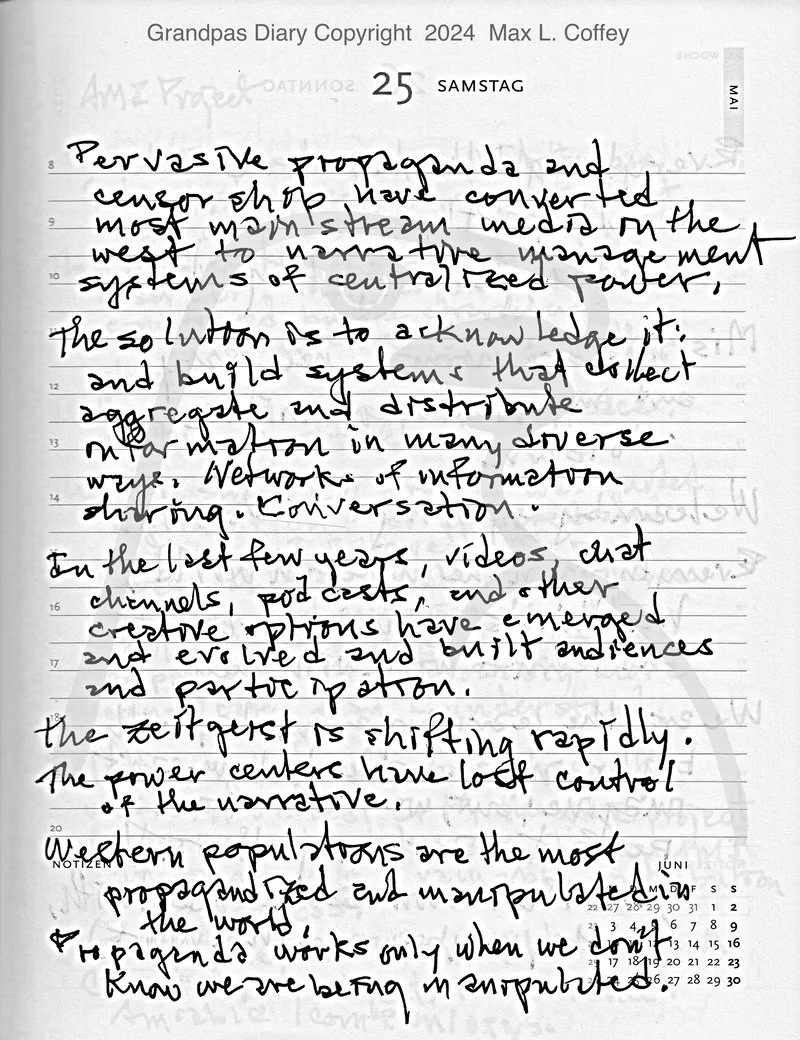 Grandpas Diary Copyright 2024 Max L. Coffey
25 SAMSTAG
MAI
8
Pervasive propaganda and
censorshop have converted
9
most mainstream media in the
west to narrative management
10
systems of centralized power,
The solution is to acknowledge it:
and build systems that collect
12
aggregate and distribute
13
information in many diverse
ways. Networks of information
14
sharing. Conversation.
In the last few years, videos, chat
channels, podcasts, and other
16
creative options have emerged
and evolved and built audiences
17
and participation.
the zeitgeist is shifting rapidly.
The power centers have lost control
of the narrative.
20
Western populations are the most
NOTIZEN
JUNI
propagandized and manipulated in
the world,
Propaganda works only when we don't
know we are being manipulated.
M D F S S
22 27 28 29 30 31 1 2
3 4 6 7 8 9
12 13 14 15 16
17 18 19 20 21 22 23
26 27 28 29 30